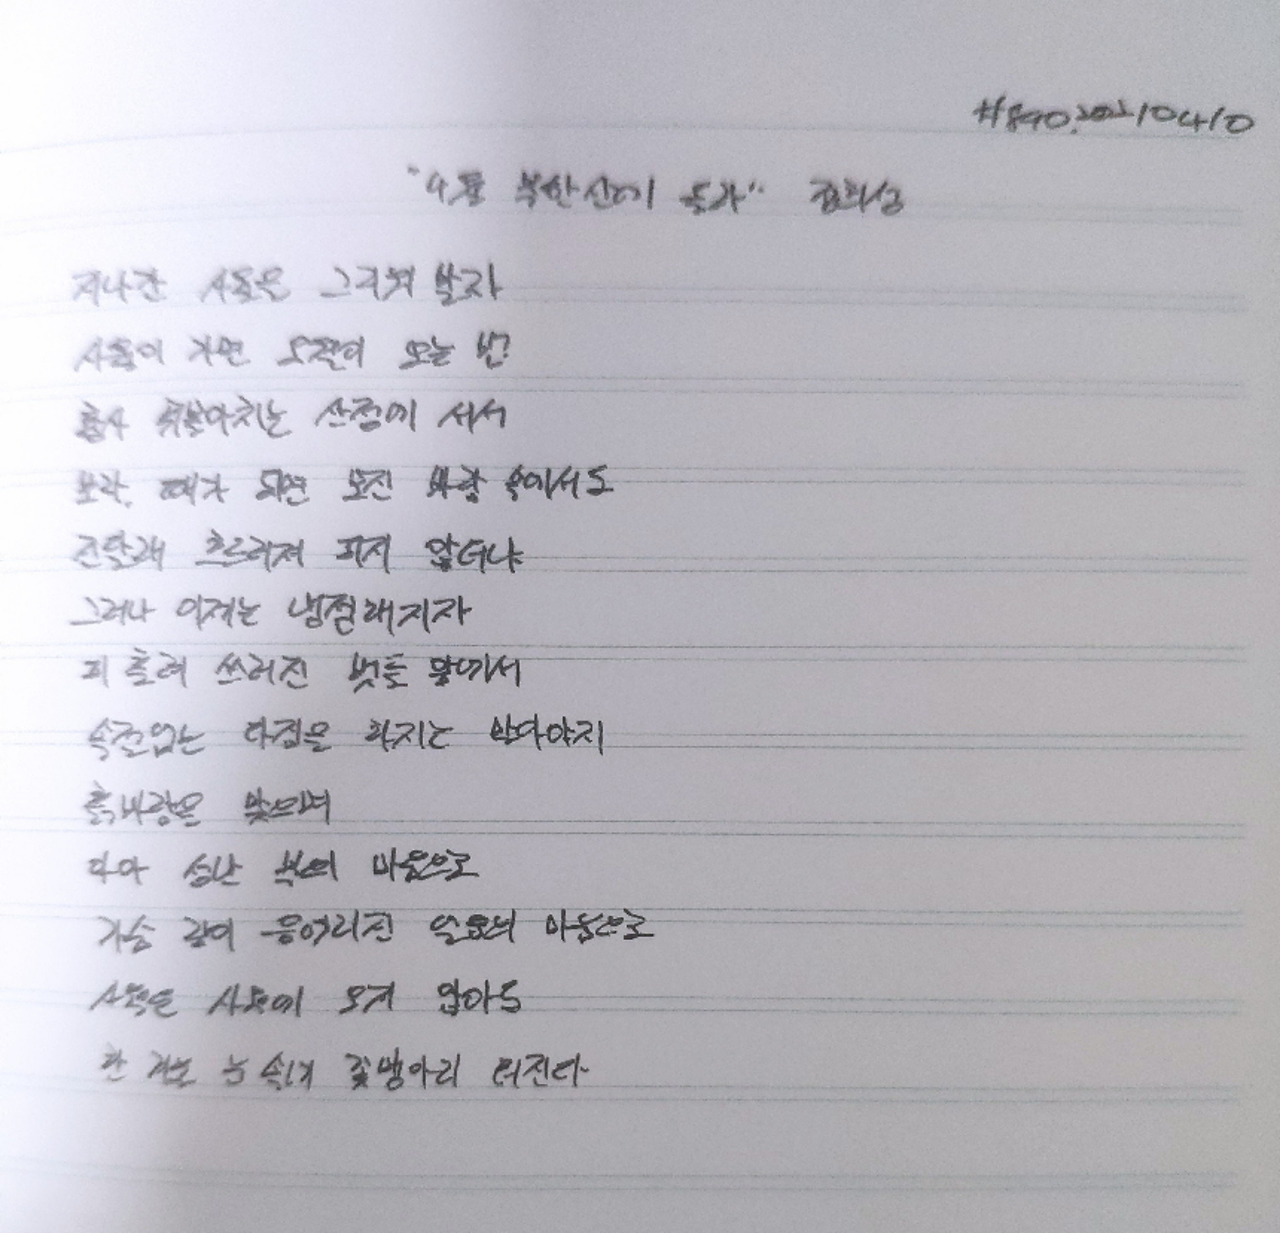 #890. 20210410
"4월 북한산에 올라" 김희성
지나간 4월은 그러려 말자
4월이 가면 오월이 오는 법?
흙사 휘몰아치는 산정에 서서
보라. 때가 되면 모진 바람 속에서도
진달래 흐드러져 피지 않더냐
그러나 이제는 냉철해지자
피 흘려 쓰러진 벗들 앞에서
속절없는 다짐을 하지는 말아야지
흙바람을 맞으며
마아 성난 의 마음으로
가슴 깊이 응어리진 의 마음으로
4월은 4월에 오지 않아도
한 겨울 눈 속에 꽃망아리 터진다